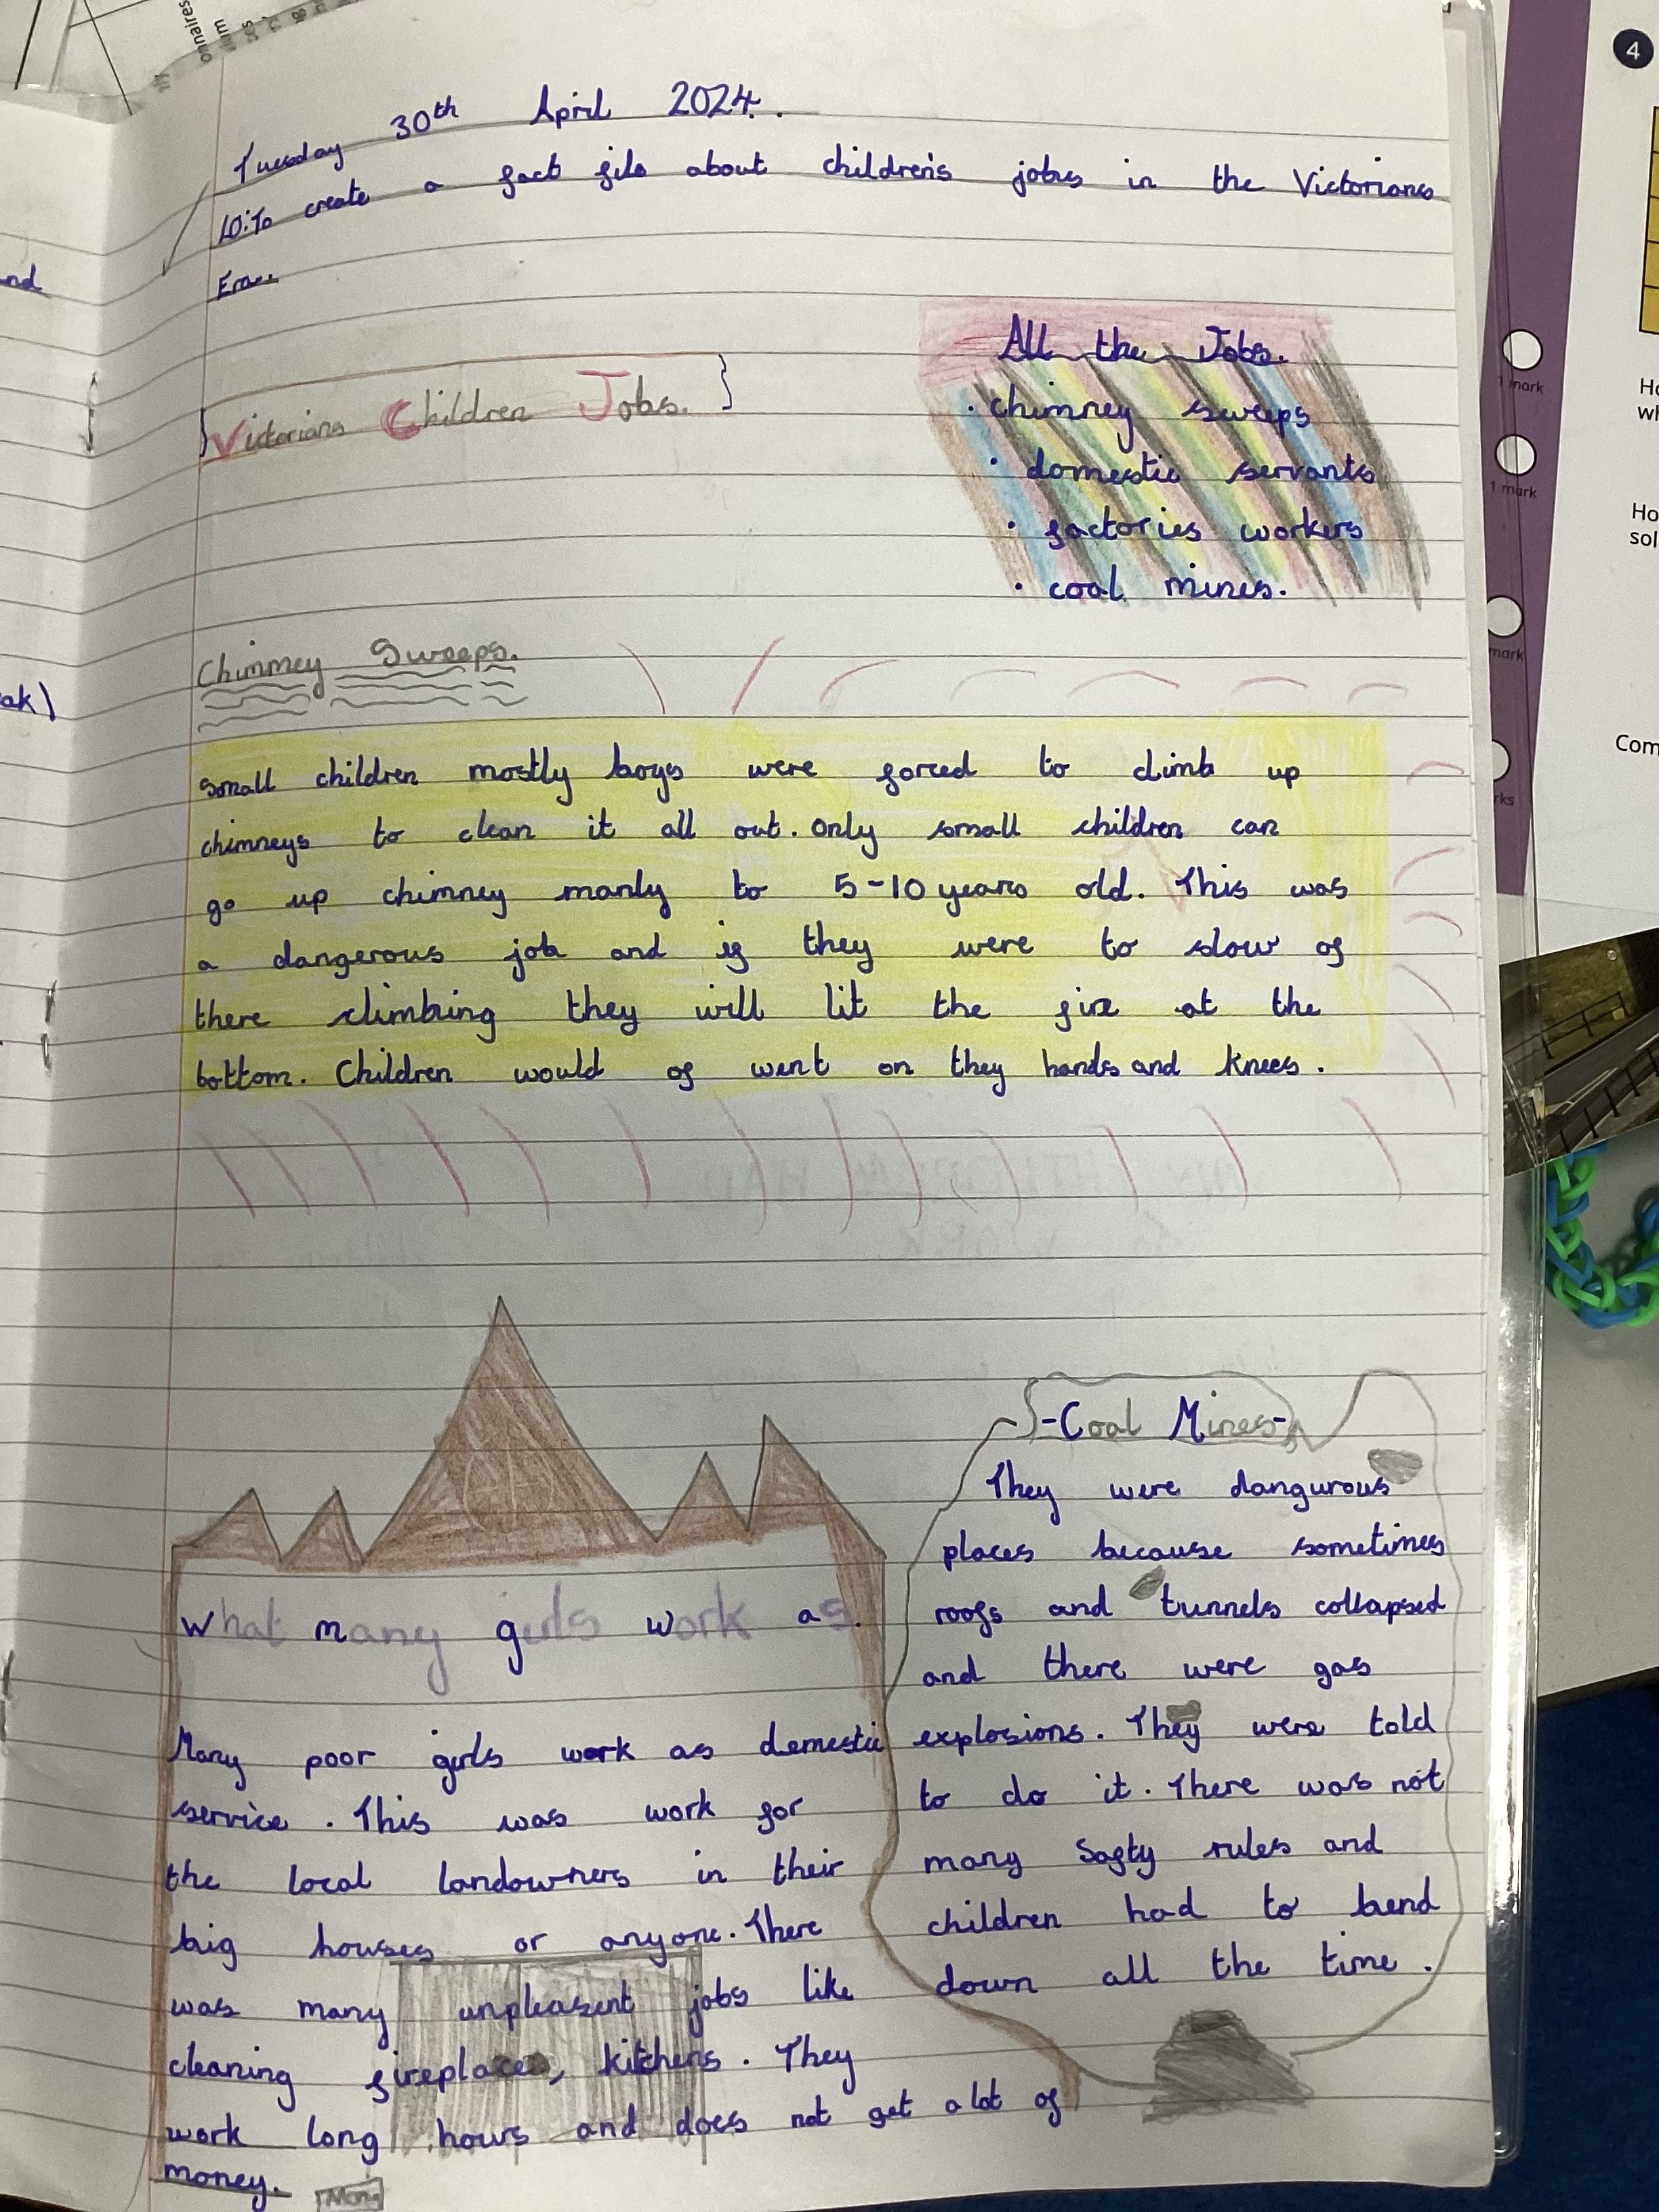 Tuesday 30th April 2024.
LO: To create a fact file about children's jobs in the Victorians
Era..
Victorians Children Jobs.
All the Jobs.
• chimney sweeps
• domestic servants
• factories workers
• coal mines.
Chimney Sweeps.
small children mostly boys were forced to climb up
chimneys to clean it all out. only small children can
go up chimney manly to 5-10 years old. This was
a dangerous job and if they were to slow of
there climbing they will lit the fire at the
bottom. Children would of went on they hands and knees.
What many girls work as.
Many poor girls work as demestic
service. This was work for
the local landowners in their
big houses or anyone. There
was many unpleasent jobs like
cleaning fireplaces, kitchens. They
work long hours and does not get a lot of
money.
-Coal Mines-
They were dangurous
places because sometimes
roofs and tunnels collapsed
and there were gas
explosions. They were told
to do it. There was not
many Safty rules and
children had to bend
down all the time.
nd
eak)
onnaires
4
1 mark
1 mark
mark
rks
Ho
wh
Ho
sol
Com